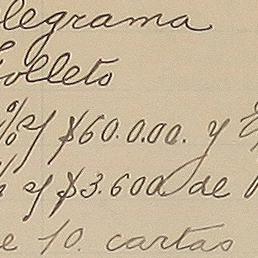 elegrama
Folleto
% y $60.0.00. y
% y $3.600 de
e 10. cartas